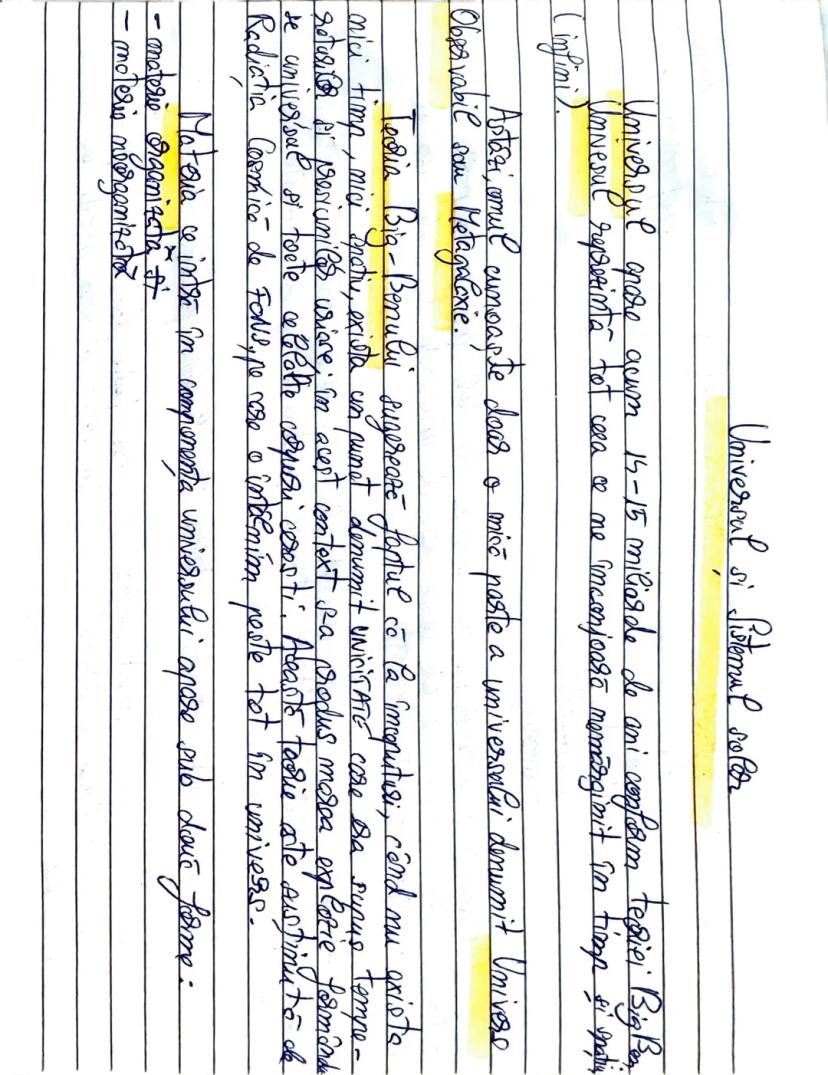 Universul și Sistemul solar
Universul apare acum 14-15 miliarde de ani conform teoriei Big Ben,
Universul reprezintă tot ceea ce ne înconjoară nemărginit în timp și spațiu
(infini).
Astăzi, omul cunoaște doar o mică parte a universului denumit Univers
Observabil sau Metagalaxie.
Teoria Big-Benului sugerează faptul că la începuturi, când nu exista
nici timp, nici spațiu, exista un punct denumit UNICITATE care era supus tempe-
raturilor și presiunilor uriașe; în acest context s-a produs marea explozie formându-
se universul și toate celelalte corpuri cerești. Această teorie este susținută de
Radiația Cosmică de FOND, pe care o întâlnim peste tot în univers.
Materia ce intră în componența universului apare sub două forme:
- materie organizată* și
- materie neorganizată